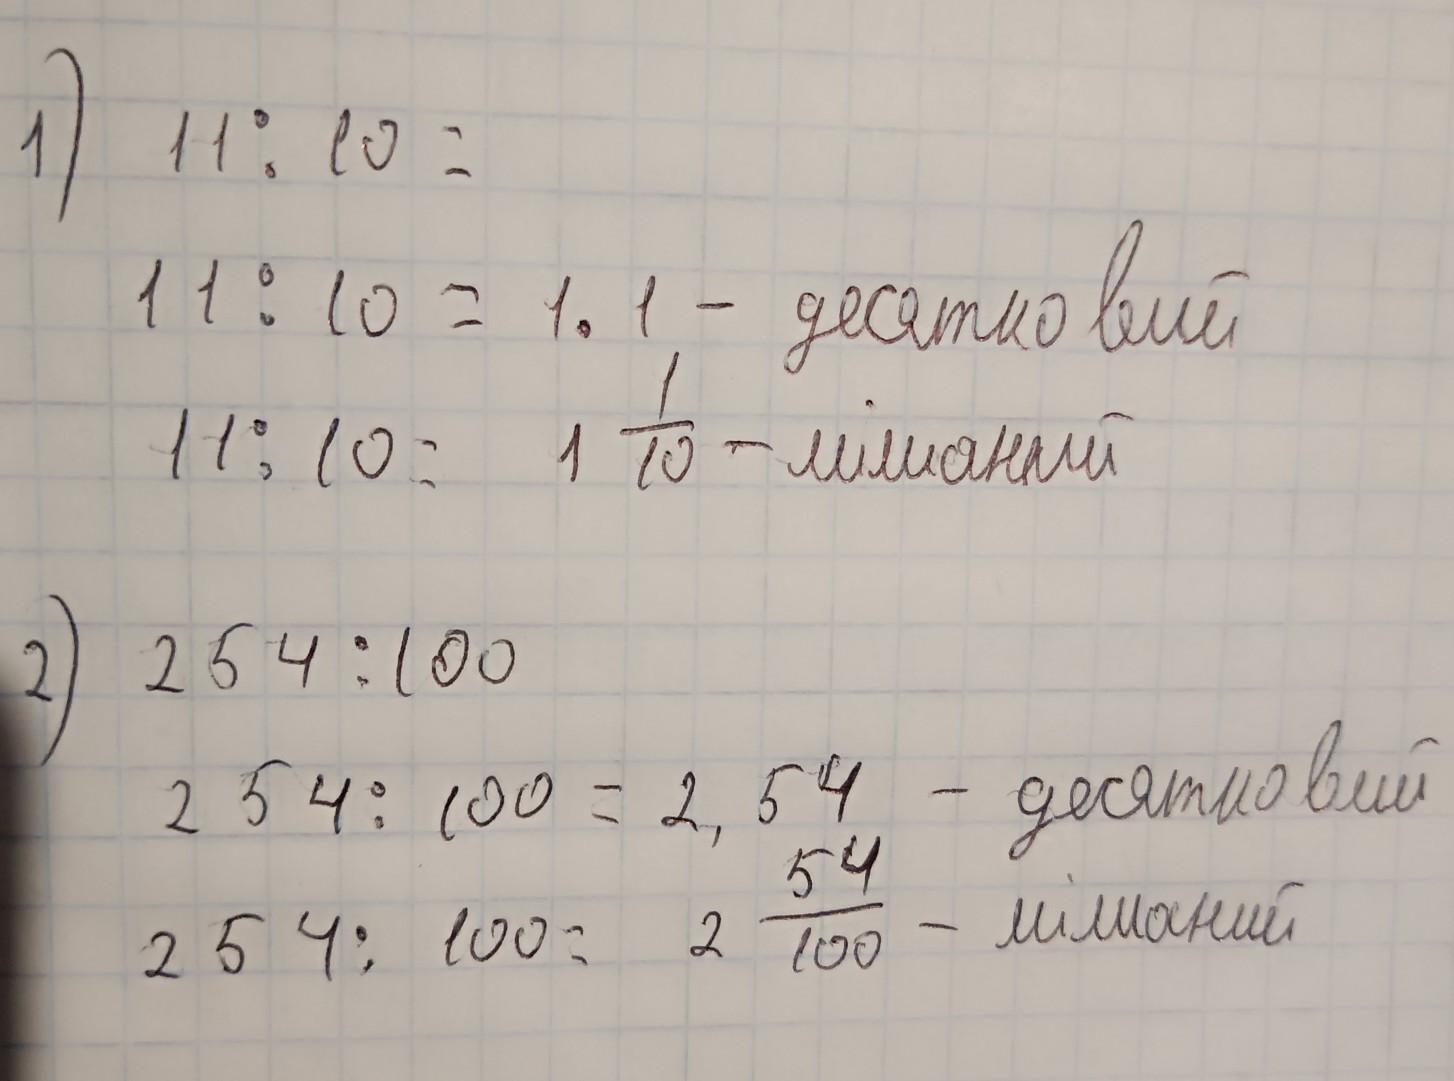 1) 11 : 10 =
11 : 10 = 1.1 - десятковий
11 : 10 = 1 1/10 - мішаний
2) 254 : 100
254 : 100 = 2,54 - десятковий
254 : 100 = 2 54/100 - мішаний